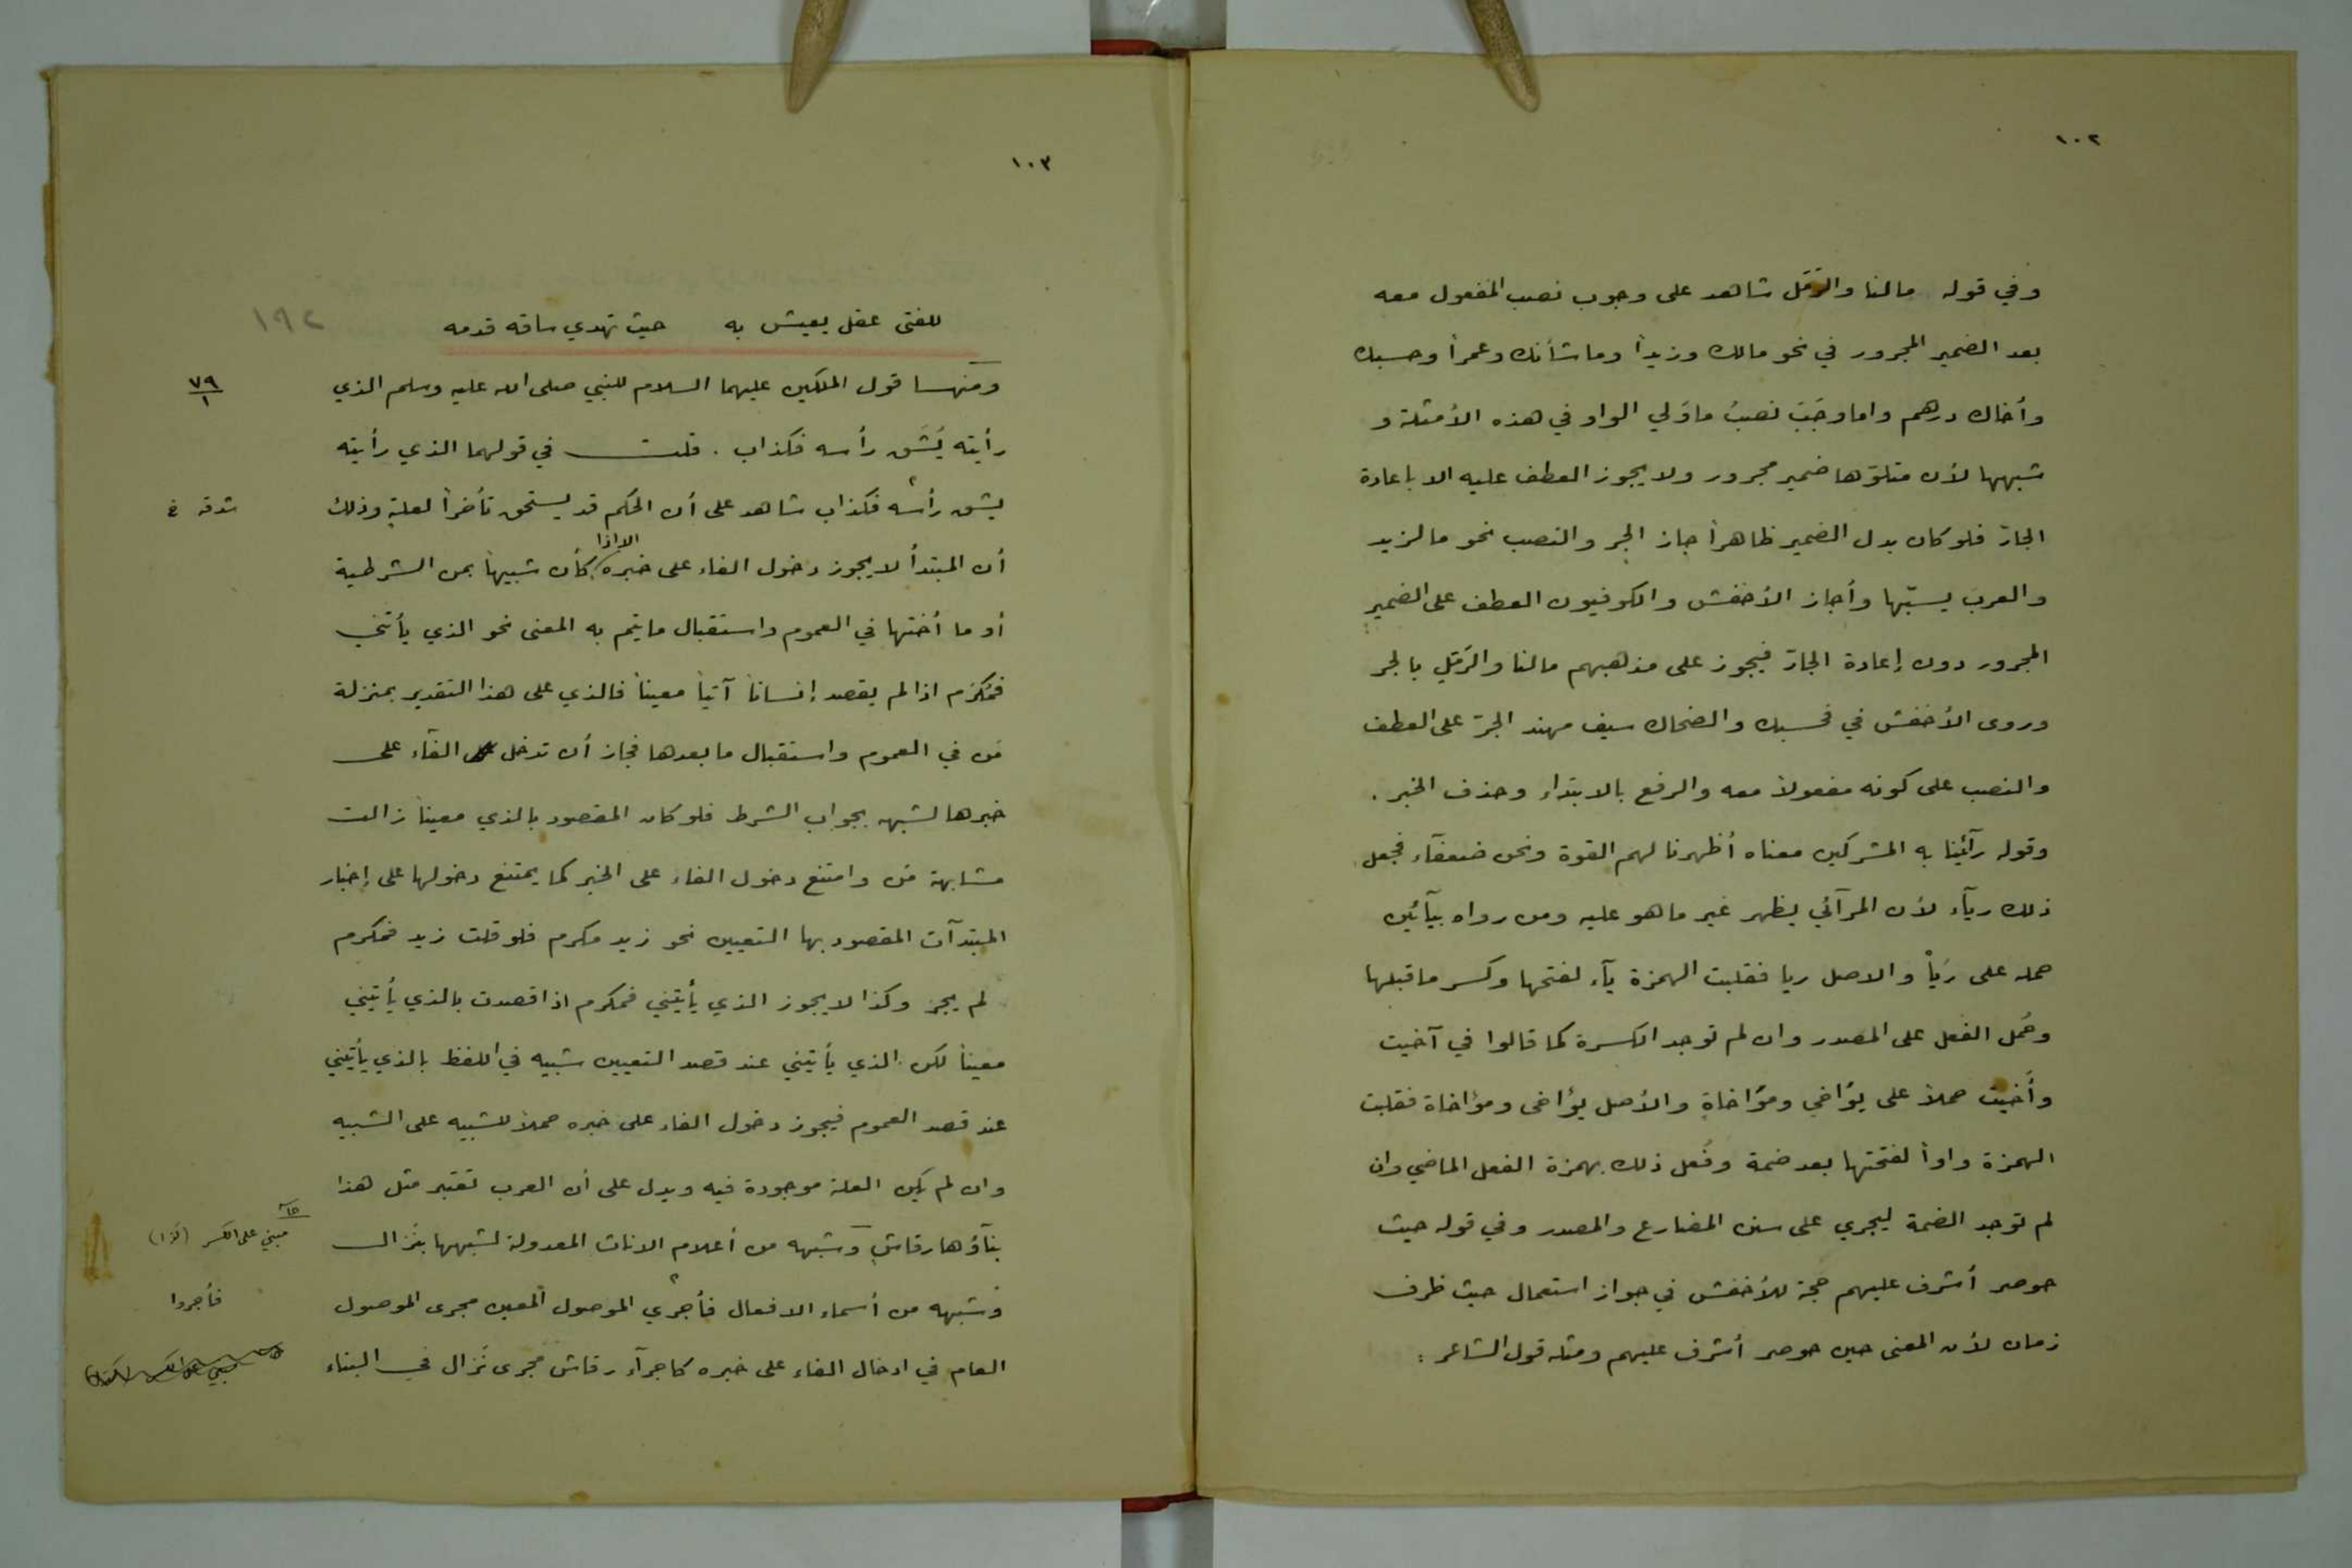 ١٠٢
وفي قوله مالنا والرَّمَل شاهد على وجوب نصب المفعول معه
بعد الضمير المجرور في نحو مالك وزيداً وما شأنك وعمراً وحسبك
وأخاك درهم واما وجَبَ نصبُ ما وَلي الواو في هذه الأمثلة و
شبهها لأن متلوّها ضمير مجرور ولا يجوز العطف عليه الا باعادة
الجارّ فلو كان بدل الضمير ظاهراً جاز الجر والنصب نحو ما لزيد
والعرب يسبّها وأجاز الأخفش والكوفيون العطف على الضمير
المجرور دون إعادة الجارّ فيجوز على مذهبهم مالنا والرَّمَلِ بالجر
وروى الأخفش في فحسبك والضحاك سيف مهند الجرّ على العطف
والنصب على كونه مفعولاً معه والرفع بالابتداء وحذف الخبر .
وقوله رآئينا به المشركين معناه أظهرنا لهم القوة ونحن ضعفآء فجعل
ذلك ريآء لأن المرآئي يظهر غير ما هو عليه ومن رواه بيآئين
حمله على رَياْ والاصل ريا فقلبت الهمزة يآء لفتحها وكسر ما قبلها
وحُمل الفعل على المصدر وان لم توجد الكسرة كما قالوا في آخيت
وأَخيت حملاً على يؤاخي ومؤاخاةٍ والأصل يؤاخى ومؤاخاة فقلبت
الهمزة واواً لفتحتها بعد ضمة وفُعل ذلك بهمزة الفعل الماضي وان
لم توجد الضمة ليجري على سنن المضارع والمصدر وفي قوله حيث
حوصر أشرف عليهم حجة للأخفش في جواز استعمال حيث ظرف
زمان لأن المعنى حين حوصر أشرف عليهم ومثله قول الشاعر :
١٠٣
١٩٢
للفتى عقل يعيش به حيث تهدي ساقه قدمه
٧٩
١
ومنهـا قول الملكين عليهما السلام للنبي صلى الله عليه وسلم الذي
رأيته يُشَق رأسه فكذاب . قلت في قولهما الذي رأيته
يشق رأسه فكذاب شاهد على أن الحكم قد يستحق تأخراً لعلةٍ وذلك
شدقه
أن المبتدأ لا يجوز دخول الفاء على خبره كأن شبيهاً بمن الشرطية
الا اذا
أو ما أختها في العموم واستقبال ما يتم به المعنى نحو الذي يأتني
فمُكرَم اذا لم يقصد إنساناً آتياً معيناً فالذي على هذا التقدير بمنزلة
مَن في العموم واستقبال ما بعدها فجاز أن تدخل الفآء على
خبرها لشبهه بجواب الشرط فلو كان المقصود بالذي معيناً زالت
مشابهة مَن وامتنع دخول الفاء على الخبر كما يمتنع دخولها على إخبار
المبتدآت المقصود بها التعيين نحو زيد مكرم فلو قلت زيد فمكرم
لم يجز وكذا لا يجوز الذي يأتيني فمكرم اذا قصدت بالذي يأتيني
معيناً لكن الذي يأتيني عند قصد التعيين شبيه في اللفظ بالذي يأتيني
عند قصد العموم فيجوز دخول الفاء على خبره حملاً للشبيه على الشبيه
وان لم يكن العلة موجودة فيه ويدل على أن العرب تعتبر مثل هذا
بنآؤها رقاشِ وشبهه من أعلام الاناث المعدولة لشبهها بنَزال
مبني على الكسر (لذا)
وشبهه من أسماء الافعال فأجري الموصول المعين مجرى الموصول
فأجروا
العام في ادخال الفاء على خبره كاجرآء رقاش مجرى نَزال في البناء